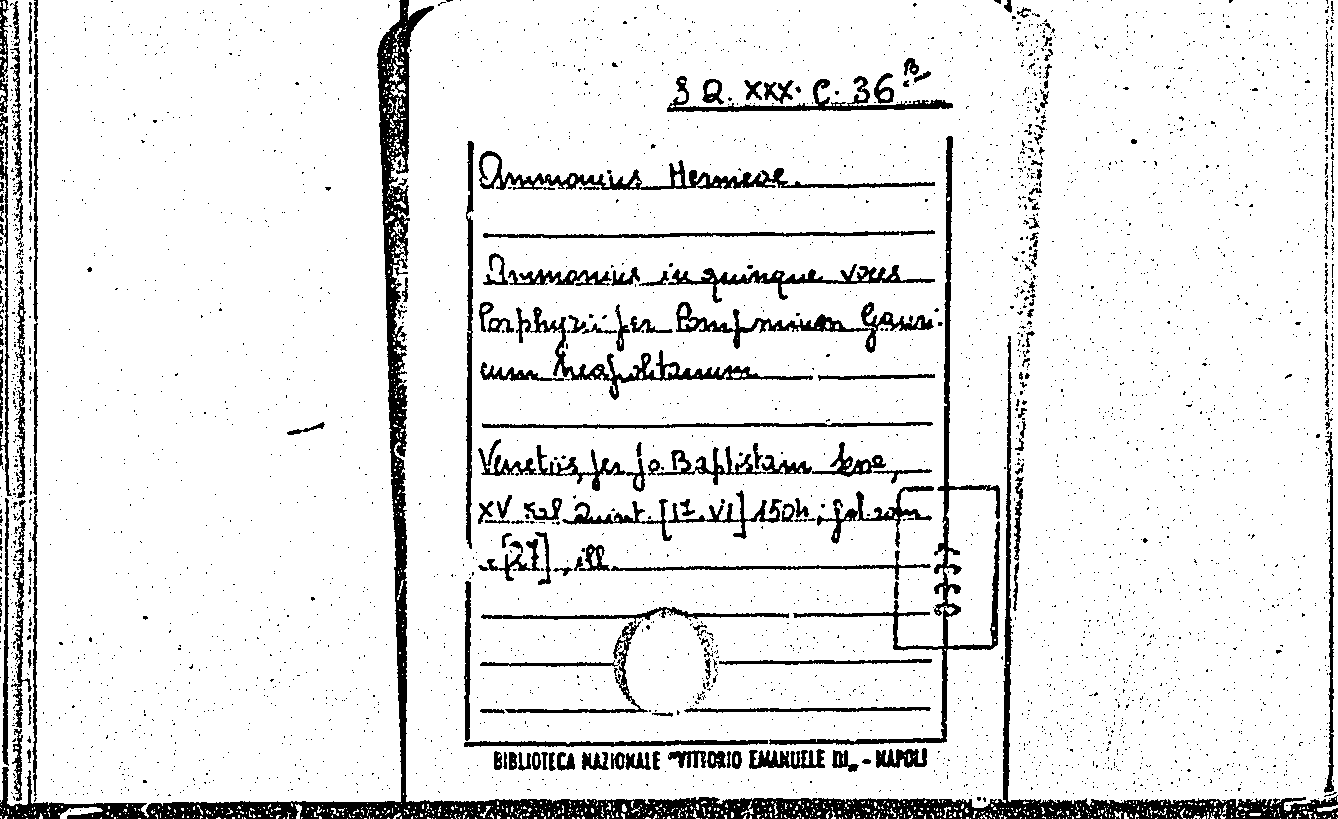 S Q. XXX. C. 36 B
Ammonius Hermeae.
Ammonius in quinque voces
Porphyrii per Pomponium Gauri-
cum neapolitanum
Venetiis, per Jo. Baptistam Sese,
XV Kal Quint. [17. VI] 1504; fol
[27], ill.
BIBLIOTECA NAZIONALE "VITTORIO EMANUELE III" - NAPOLI